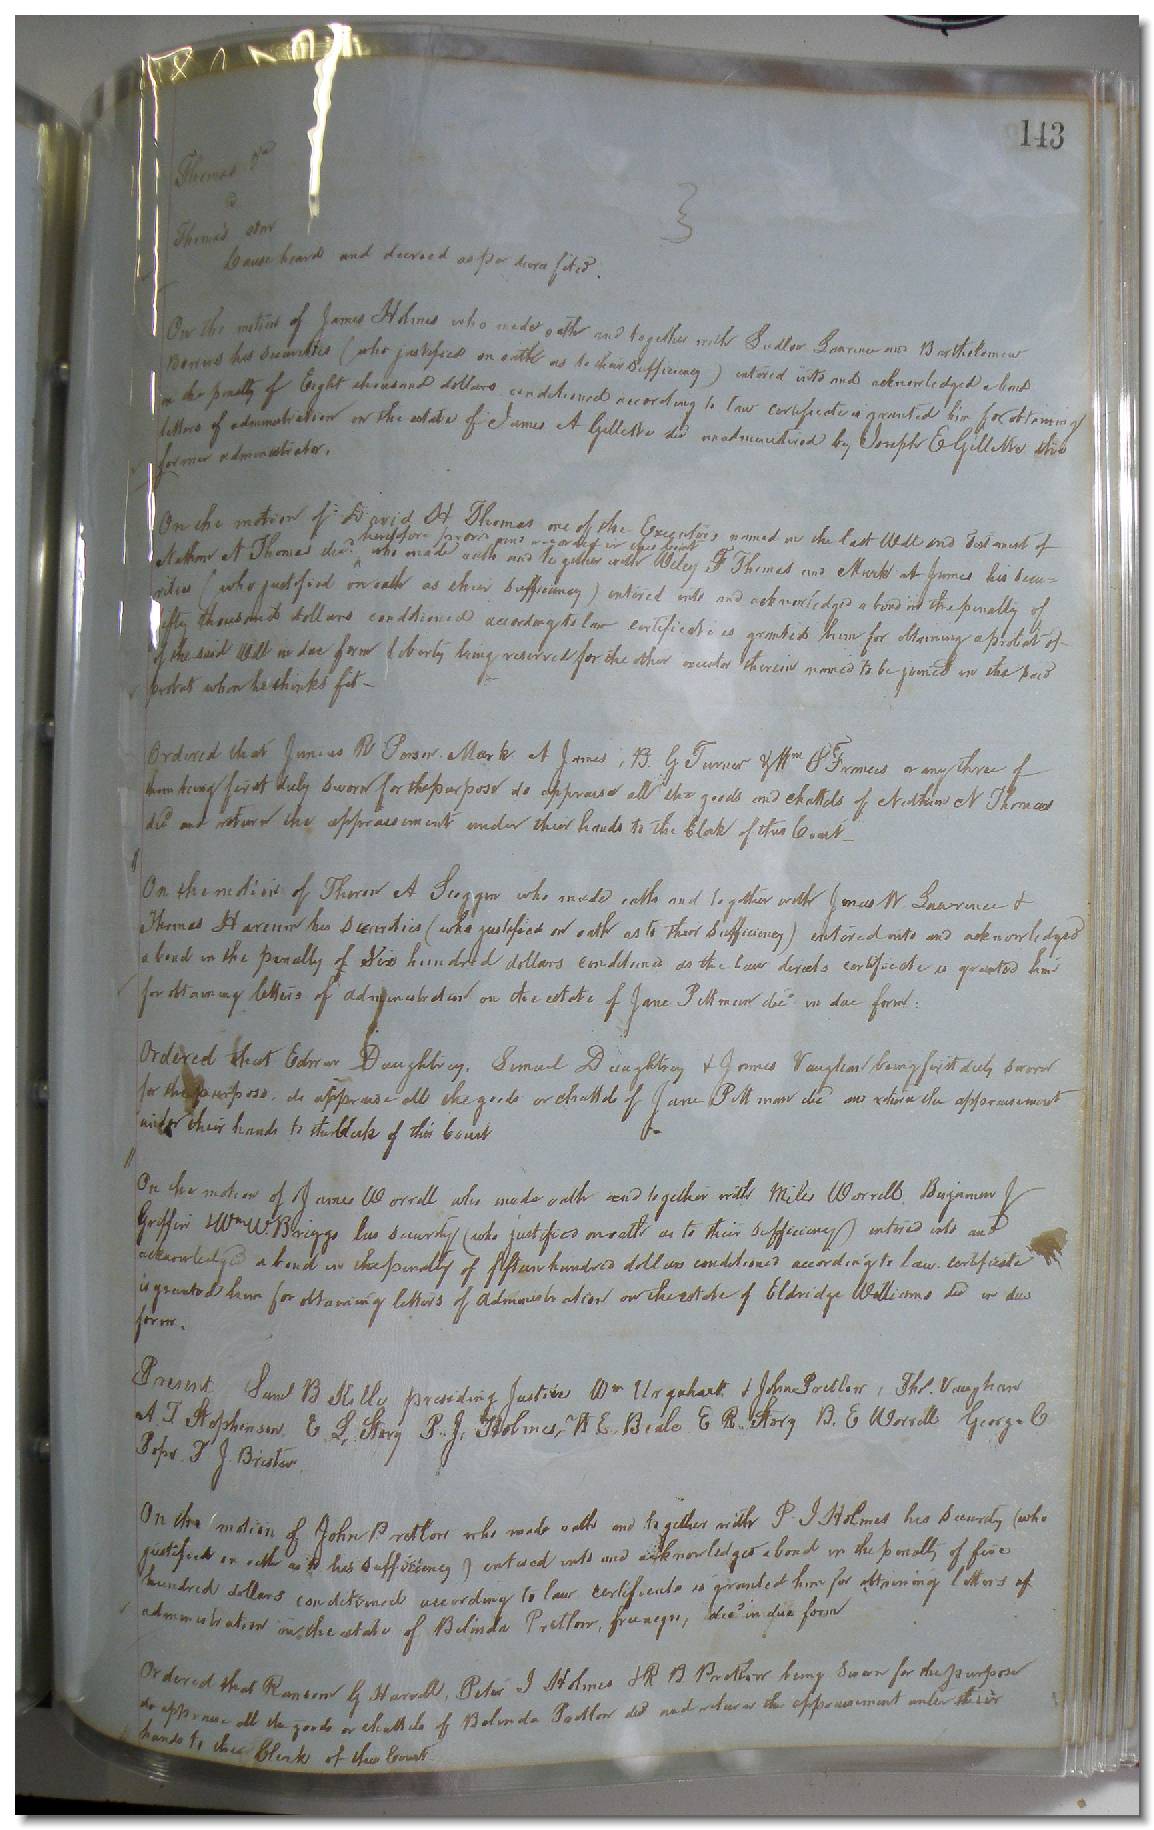 143
Thomas
Thomas
Cause heard and decreed as per decree filed.
On the motion of James Holmes who made oath and together with Sudlow Lawrence and Bartholomew
his Securities (who justified on oath as to their Sufficiency) entered into and acknowledged a bond
in the penalty of Eight thousand dollars conditioned according to law certificate is granted him for obtaining
letters of administration on the estate of James A Gillette decd unadministered by Joseph E Gillette the
former administrator.
On the motion of David H Thomas one of the Executors named in the last Will and Testament of
heretofore proven and recorded in this Court
Nathan N Thomas decd who made oath and together with Wiley F Thomas and Mark A James his Secu=
rities (who justified on oath as their Sufficiency) entered into and acknowledged a bond in the penalty of
fifty thousand dollars conditioned according to law certificate is granted him for obtaining a probat of
of the said Will in due form liberty being reserved for the other executor therein named to be joined in the said
probat when he thinks fit—
Ordered that Junius R Person Mark A James, B. G Turner & Wm J Francis or any three of
them being first duly sworn for the purpose do appraise all the goods and chattels of Nathan N Thomas
decd and return the appraisement under their hands to the Clerk of this Court—
On the motion of Theron A Scoggin who made oath and together with James W Lawrence &
Thomas Harcum his Securities (who justified on oath as to their Sufficiency) entered into and acknowledged
a bond in the penalty of Six hundred dollars conditioned as the law directs certificate is granted him
for obtaining letters of administration on the estate of Jane Pittman decd in due form.
Ordered that Edwin Daughtrey, Samuel Daughtrey & James Vaughan being first duly sworn
for the purpose, do appraise all the goods or chattels of Jane Pittman decd and return the appraisement
under their hands to the Clerk of this Court
On the motion of James Worrell who made oath and together with Miles Worrell, Benjamin J
Griffin & Wm W Briggs his Security (who justified on oath as to their Sufficiency) entered into and
acknowledged a bond in the penalty of fifteen hundred dollars conditioned according to law certificate
is granted him for obtaining letters of administration on the estate of Eldridge Williams decd in due
form.
Present Saml B Kello presiding Justice Wm Urquhart & John Pretlow, Thos. Vaughan
A. T Stephenson E. L. Story P. J. Holmes, E. Beale E R. Story B. E Worrell George C
Pope T J. Brister
On the motion of John Pretlow who made oath and together with P. J Holmes his Security (who
justified on oath as to his Sufficiency) entered into and acknowledged a bond in the penalty of five
hundred dollars conditioned according to law certificate is granted him for obtaining letters of
administration on the estate of Belinda Pretlow, free negro, decd in due form
Ordered that Ransom G Harrell, Peter J Holmes & R B Pretlow being Sworn for the purpose
do appraise all the goods or chattels of Belinda Pretlow decd and return the appraisement under their
hands to the Clerk of the Court